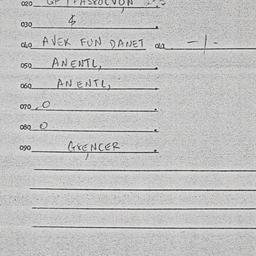 020
030 $
040 AVEK FUN DANET 060 -/-
050 ANENTL,
060 ANENTL,
070 0
080 0
090 GKENCER